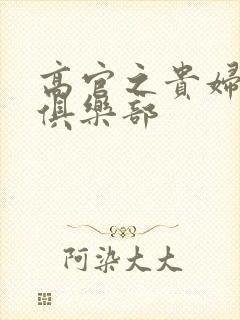 高官之貴婦
俱樂部
阿染大大